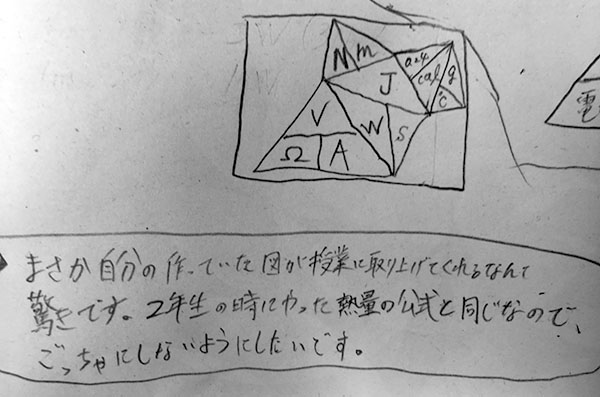 N m
J
4.2
cal
g
℃
V
W
S
Ω A
電
まさか自分の作っていた図が授業に取り上げてくれるなんて
驚きです。2年生の時にやった熱量の公式と同じなので、
ごっちゃにしないようにしたいです。